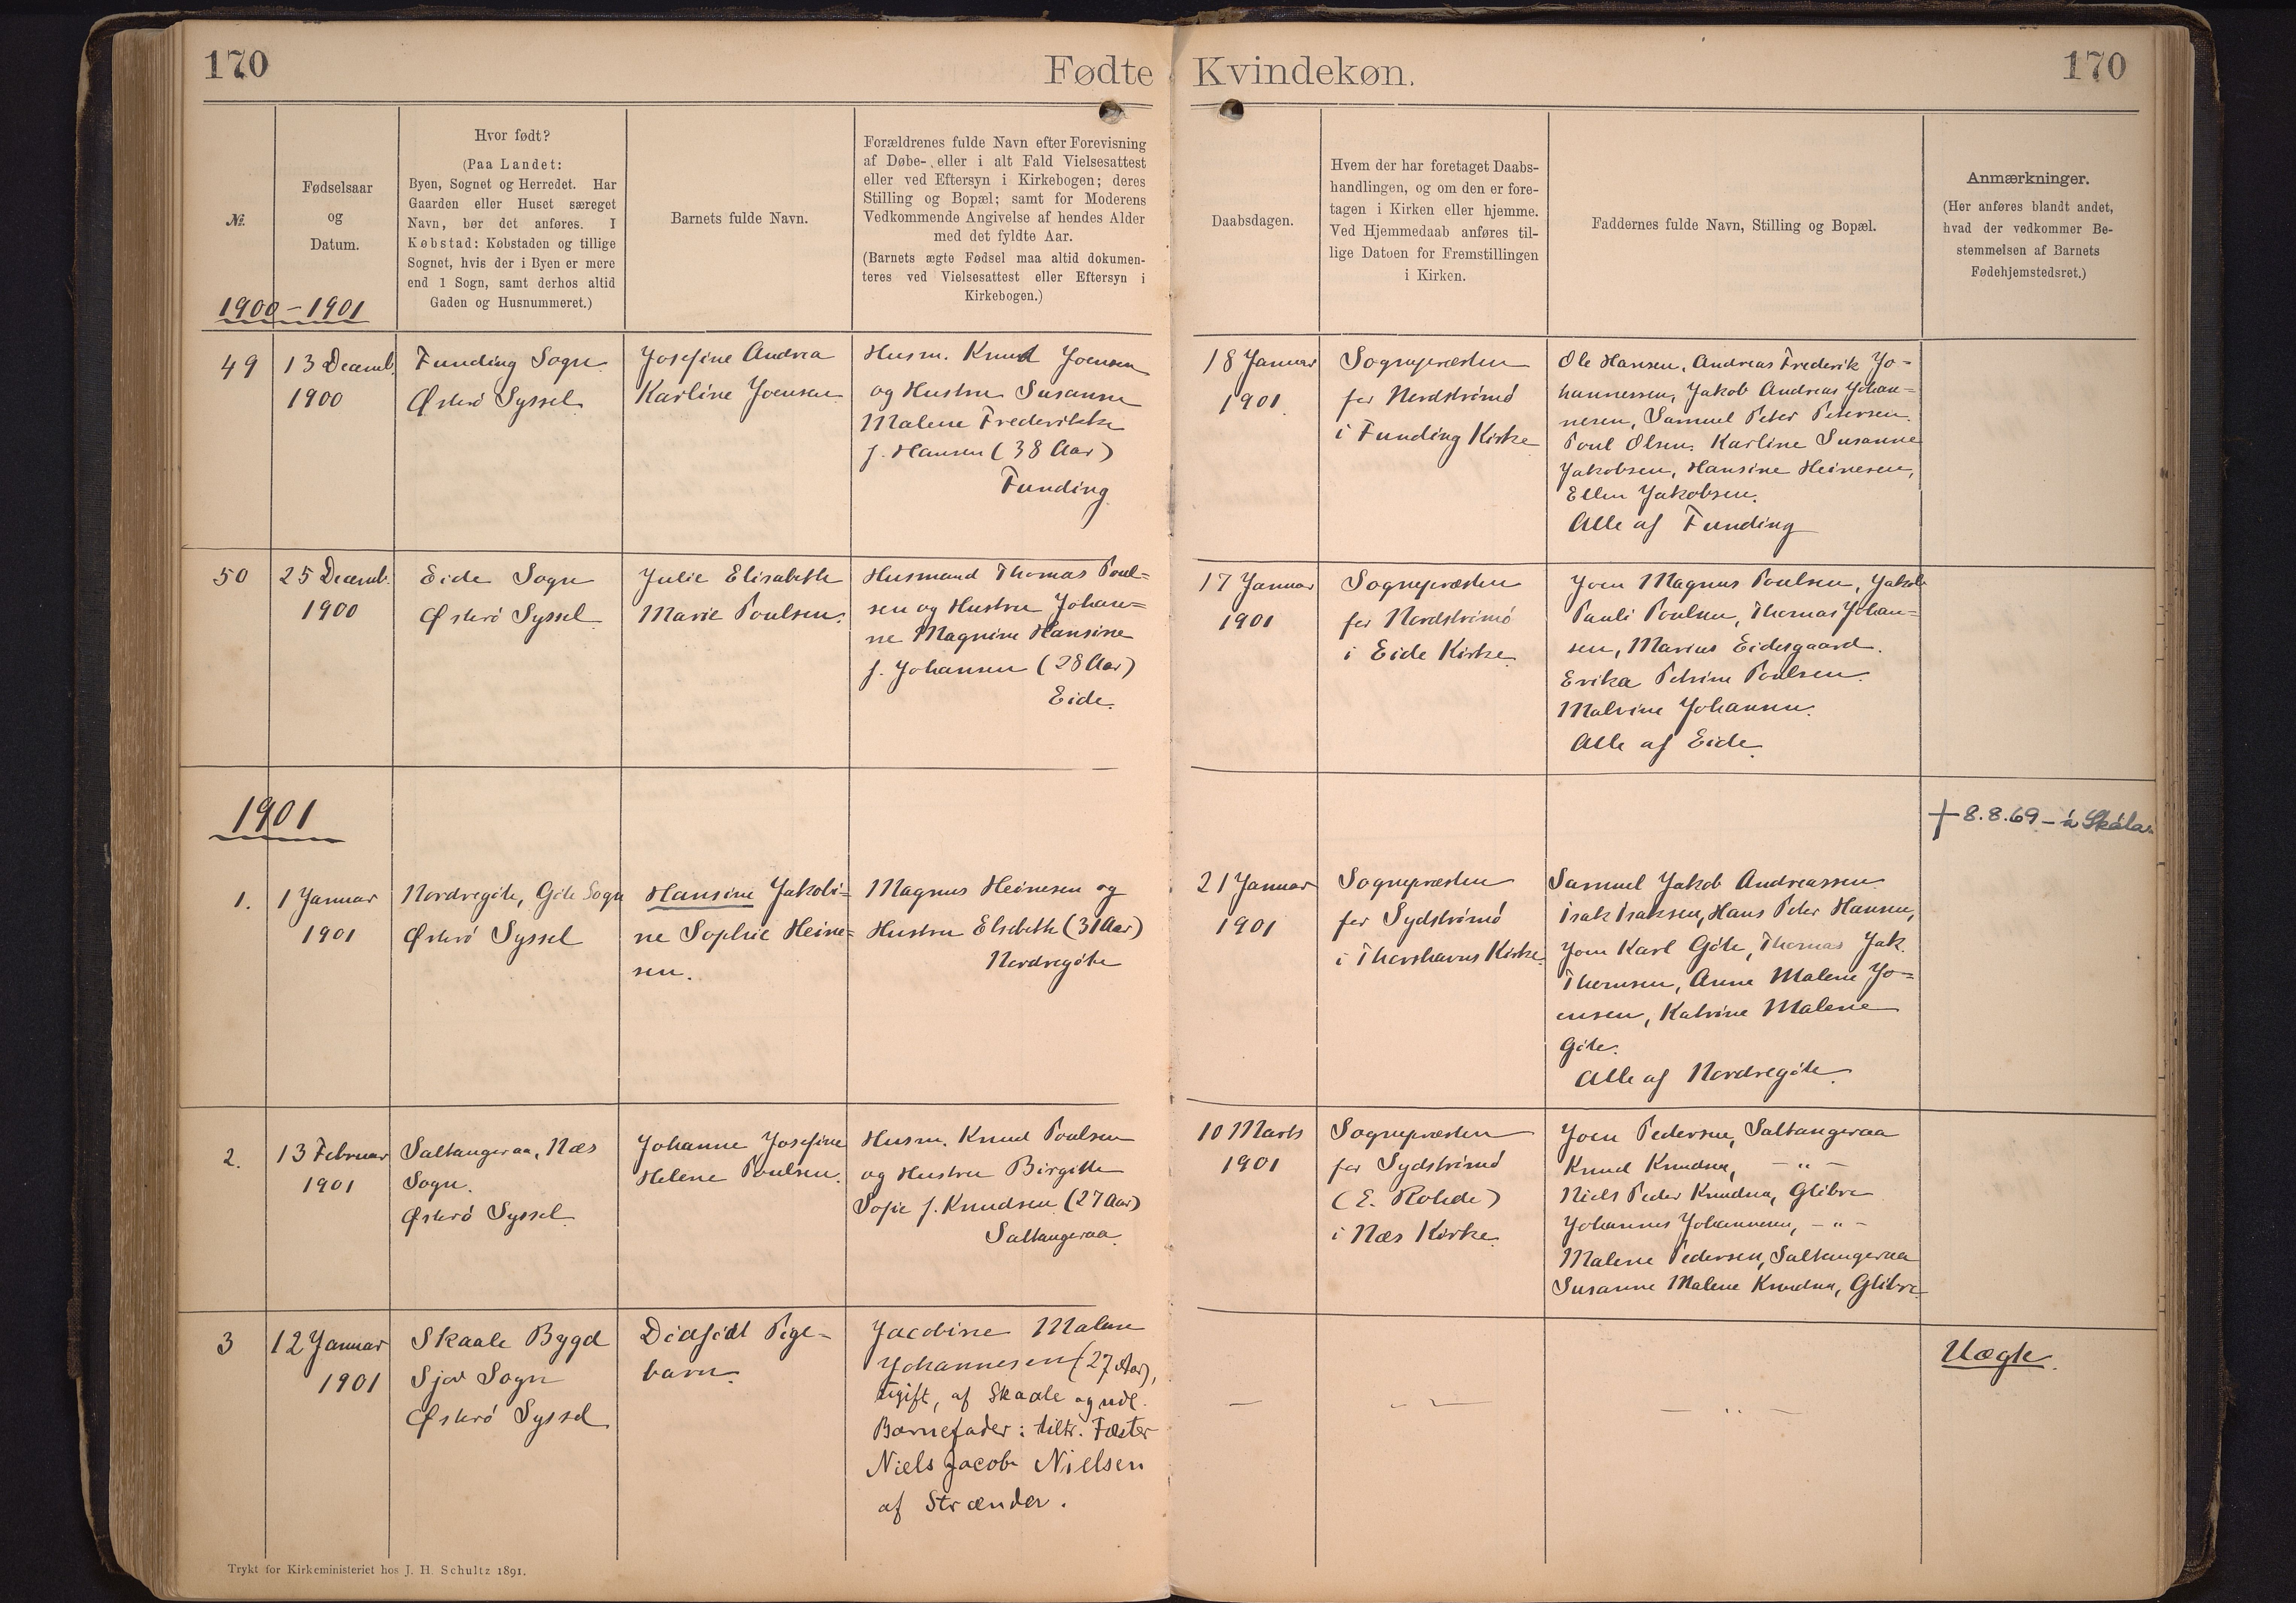 170
Fødte
Kvindekøn.
170
№
Fødselsaar
og
Datum.
Hvor født?
(Paa Landet:
Byen, Sognet og Herredet. Har
Gaarden eller Huset særeget
Navn, bør det anføres. I
Købstad: Købstaden og tillige
Sognet, hvis der i Byen er mere
end 1 Sogn, samt derhos altid
Gaden og Husnummeret.)
Barnets fulde Navn.
Forældrenes fulde Navn efter Forevisning
af Døbe- eller i alt Fald Vielsesattest
eller ved Eftersyn i Kirkebogen; deres
Stilling og Bopæl; samt for Moderens
Vedkommende Angivelse af hendes Alder
med det fyldte Aar.
(Barnets ægte Fødsel maa altid dokumen-
teres ved Vielsesattest eller Eftersyn i
Kirkebogen.)
Daabsdagen.
Hvem der har foretaget Daabs-
handlingen, og om den er fore-
tagen i Kirken eller hjemme.
Ved Hjemmedaab anføres til-
lige Datoen for Fremstillingen
i Kirken.
Faddernes fulde Navn, Stilling og Bopæl.
Anmærkninger.
(Her anføres blandt andet,
hvad der vedkommer Be-
stemmelsen af Barnets
Fødehjemstedsret.)
1900-1901
49
13 Decemb.
1900
Funding Sogn
Østerö Syssel
Josefine Andrea
Karline Joensen
Husm. Knud Joensen
og Hustru Susanne
Malene Frederikke
f. Hansen (38 Aar)
Funding
18 Januar
1901.
Sognepræsten
for Nordströmö
i Funding Kirke
Ole Hansen, Andreas Frederik Jo-
hannessen, Jakob Andreas Johan=
nesen, Samuel Peter Petersen.
Poul Olsen. Karline Susanne
Jakobsen, Hansine Heinesen,
Ellen Jakobsen.
Alle af Funding
50
25 Decemb.
1900
Eide Sogn
Østerö Syssel
Julie Elisabeth
Marie Poulsen.
Husmand Thomas Poul=
sen og Hustru Johan=
ne Magnine Hansine
f. Johansen (28 Aar)
Eide.
17 Januar
1901
Sognepræsten
for Nordströmö
i Eide Kirke
Joen Magnus Poulsen, Jakob
Pauli Poulsen, Thomas Johan=
sen, Marius Eidesgaard.
Erika Petrine Poulsen.
Malvine Johansen.
Alle af Eide.
1901
✝ 8.8.69 - á Skála.
1.
1 Januar
1901
Nordregöte, Göte Sogn
Østerö Syssel
Hansine Jakobi=
ne Sophie Heine=
sen.
Magnus Heinesen og
Hustru Elsebeth (31 Aar)
Nordregöte
21 Januar
1901
Sognepræsten
for Sydströmö
i Thorshavns Kirke.
Samuel Jakob Andreassen.
Isak Isaksen, Hans Peter Hansen,
Joen Karl Göte, Thomas Jak.
Thomsen, Anne Malene Jo=
ensen, Katrine Malene
Göte.
Alle af Nordregöte.
2.
13 Februar
1901
Saltangeraa, Næs
Sogn.
Østerö Syssel
Johanne Josefine
Helene Poulsen.
Husm. Knud Poulsen
og Hustru Birgitte
Sofie f. Knudsen (27 Aar)
Saltangeraa.
10 Marts
1901
Sognepræsten
for Sydströmö
(E. Rohde)
i Næs Kirke.
Joen Pedersen, Saltangeraa
Knud Knudsen, - " -
Niels Peder Knudsen, Glibre
Johannes Johannesen, - " -
Malene Pedersen, Saltangeraa
Susanne Malene Knudsen, Glibre
3
12 Januar
1901
Skaale Bygd
Sjov Sogn
Østerö Syssel
Dödfödt Pige-
barn.
Jacobine Malene
Johannesen (27 Aar),
ugift, af Skaale og udl.
Barnefader: tiltr. Fæster
Niels Jacob Nielsen
af Strænder.
—
- " -
- " -
Uægte.
Trykt for Kirkeministeriet hos J. H. Schultz 1891.